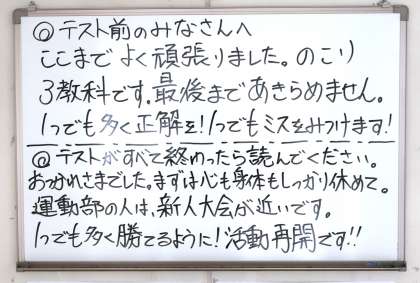 @テスト前のみなさんへ
ここまでよく頑張りました。のこり
3教科です。最後まであきらめません。
1つでも多く正解を!1つでもミスをみつけます!
@テストがすべて終わったら読んでください。
おつかれさまでした。まずは心も身体もしっかり休めて。
運動部の人は、新人大会が近いです。
1つでも多く勝てるように!活動再開です!!